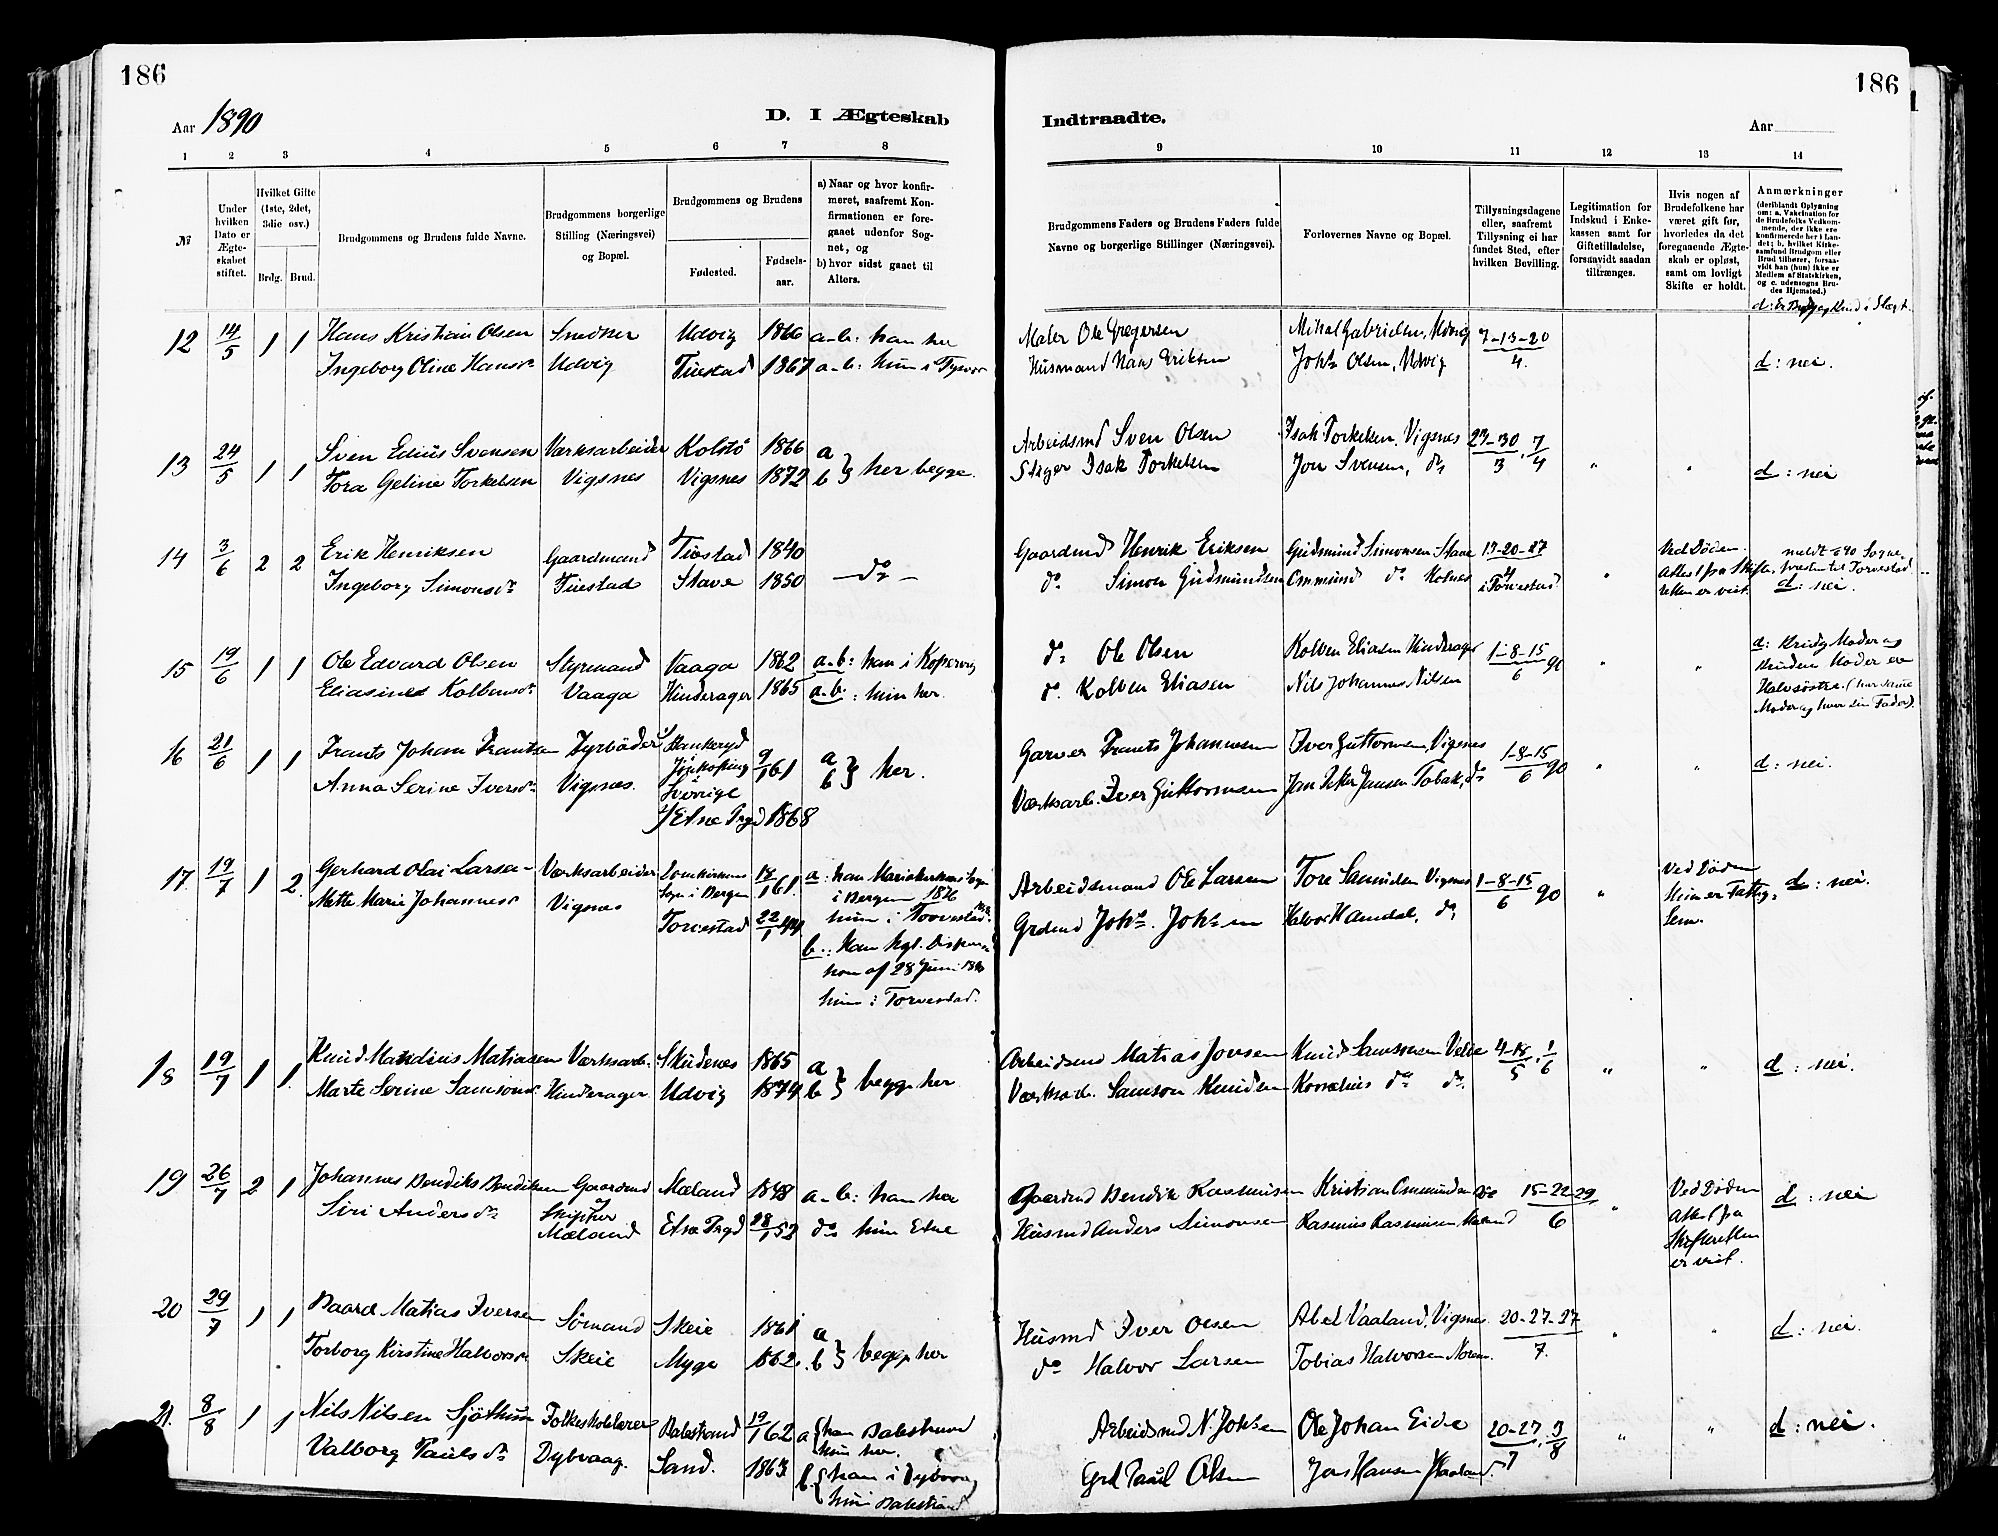 186
186
Aar 1890
D. I Ægteskab
Indtraadte.
Aar
1 2 3 4 5 6 7 8
9 10 11 12 13 14
№
Under hvilken Dato er Ægteskabet stiftet.
Hvilket Gifte (1ste, 2det, 3die osv.)
Brdg. Brud.
Brudgommens og Brudens fulde Navne.
Brudgommens borgerlige Stilling (Næringsvei) og Bopæl.
Brudgommens og Brudens
Fødested. Fødselsaar.
a) Naar og hvor konfirmeret, saafremt Konfirmationen er foregaaet udenfor Sognet, og
b) hvor sidst gaaet til Alters.
Brudgommens Faders og Brudens Faders fulde Navne og borgerlige Stillinger (Næringsvei).
Forlovernes Navne og Bopæl.
Tillysningsdagene eller, saafremt Tillysning ei har fundet Sted, efter hvilken Bevilling.
Legitimation for Indskud i Enkekassen samt for Giftetilladelse, forsaavidt saadan tiltrænges.
Hvis nogen af Brudefolkene har været gift før, hvorledes da det foregaaende Ægteskab er opløst, samt om lovligt Skifte er holdt.
Anmærkninger (deriblandt Oplysning om: a. Vakcination for de Brudefolks Vedkommende, der ikke ere konfirmerede her i Landet; b. hvilket Kirkesamfund Brudgom eller Brud tilhører, forsaavidt han (hun) ikke er Medlem af Statskirken, og c. udensogns Brudes Hjemsted.)
12 14/5 1 1 Hans Kristian Olsen Snedker Udvig 1866 a-b: han her
Maler Ole Gregersen Mikal Gabrielsen, Udvig 7-13-20/4
Ingeborg Oline Hansdr Udvig Tuestad 1867 a-b: hun i Tysvær
Husmand Hans Eriksen Johs Olsen, Udvig d: nei.
13 24/5 1 1 Sven Edius Svensen Værksarbeider Kolstø 1866 a
Arbeidsmd Sven Olsen Isak Torkelsen, Vigsnes 23-30/3, 7/4
Tora Geline Torkelsen Vigsnes Vigsnes 1872 b } her begge.
Stiger Isak Torkelsen Jon Svensen, do " " d: nei
14 3/6 2 2 Erik Henriksen Gaardmand Tuestad 1840
Gaardmd Henrik Eriksen Gudmund Simonsen Stave 13-20-27 Ved Døden.
Ingeborg Simonsdr Tuestad Stave 1850 — do —
do Simon Gudmundsen Ommund do Holnes i Torvestad " Attest fra Skifteretten er vist. d: nei.
15 19/6 1 1 Ole Edvard Olsen Styrmand Vaaga 1862 a-b: han i Kopervig
do Ole Olsen Kolben Eliasen Hinderager 1-8-15/6 90 " "
Eliasine Kolbensdr Vaaga Hinderager 1865 a.b.: hun her.
do Kolben Eliasen Nils Johannes Nilsen
d: Brudg Moder og Bruden Moder er Halvsøstre. (har samme Moder og hver sin Fader).
16 21/6 1 1 Frants Johan Frantsen Fyrbøder Jönköping Sverige 9/1 61 a
Garver Frants Johannesen Iver Guttormsen, Vigsnes 1-8-15/6 90 " "
Anna Serine Iversdr Vigsnes. Etne Prgd 1868 b } her.
Værksarb. Iver Guttormsen Jan Peter Jansen Tabak, do d: nei.
17 19/7 1 2 Gerhard Olai Larsen Værksarbeider Domkirkens Sogn i Bergen 18/1 61. a: han Mariakirkens Sogn i Bergen 1876
Arbeidsmand Ole Larsen Tore Samuelsen Vigsnes 1-8-15/6 90 " Ved Døden
Mette Marie Johannesdr Vigsnes Torvestad 22/1 44 hun i Torvestad
Grdmd Johs. Johsen Halvor Hamdal, do Hun er Fattiglem. d: nei.
b.: han kgl. Dispensation af 28 Juni 1890
hun i Torvestad.
18 19/7 1 1. Knud Mandius Matiasen Værksarb. Skudenes 1865 a
Arbeidsmd Matias Jonsen Knud Samsonsen Velle 4-18/5, 1/6 " "
Marte Serine Samsonsdr. Hinderager. Udvig 1874 b } begge her
Værksarb. Samson Knudsen Kornelius do do. d: nei.
19 26/7 2 1 Johannes Bendiks Bendiksen Gaardmd Skipper Mæland Mæland 1848 a-b: han her
Gaardmd Bendik Rasmusen Kristian Ommundsen 15-22-29/6 " Ved Døden
Siri Andersdr Etne Prgd 28/1 52 do hun Etne
Husmd Anders Simonsen Rasmus Rasmusen Mæland Attest fra Skifteretten er vist. d: nei
20 29/7 1 1 Baard Matias Iversen Sømand Skeie 1861 a
Husmd Iver Olsen Abel Vaaland, Vigsnes 20-27-27/7. " "
Torborg Kirstine Halvorsdr Skeie Myge 1862. b } begge her
do Halvor Larsen Tobias Halvorsen d: nei.
21. 8/8 1 1 Nils Nilsen Sjøthun Folkeskolelærer Balestrand 19/1 62 a { han Balestrand hun her.
Arbeidsmd N. Johsen Ole Johan Eide 20-27/7, 3/8 " "
Valborg Paulsdr Dybvaag. Sand. 1863 b. { han i Dybvaag hun Balestrand
Grd Paul Olsen Jon Hansen Haaland. d: nei.